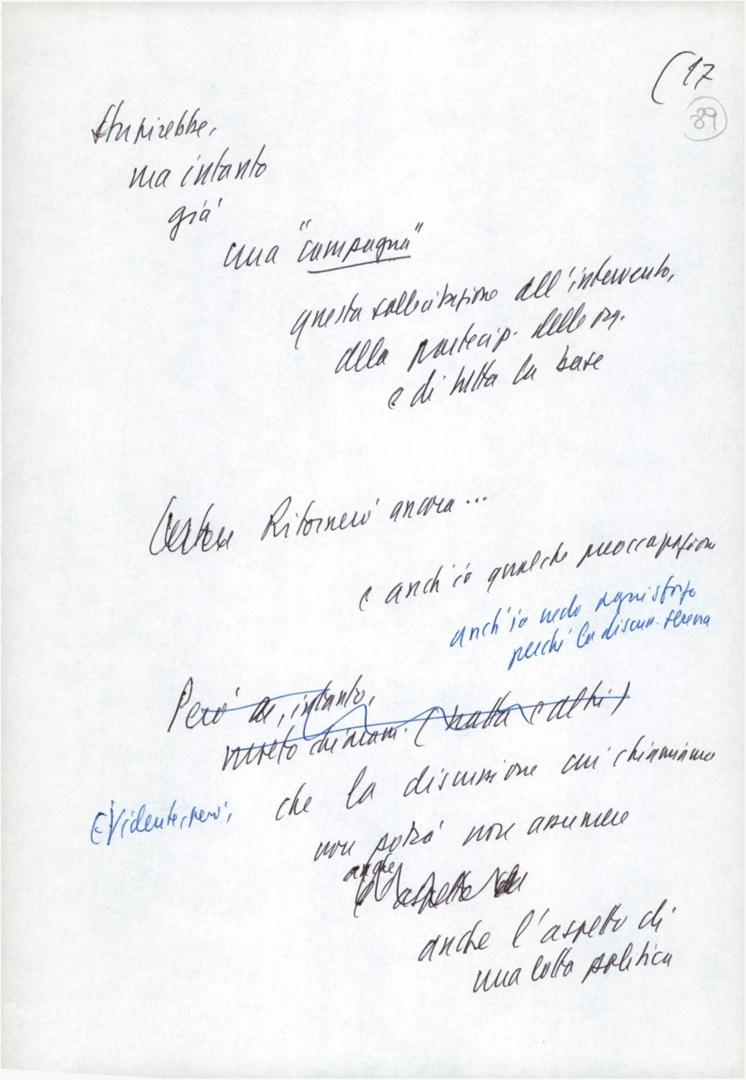 (17
89
stupirebbe,
ma intanto
già
una "campagna"
questa sollecitazione all'intervento,
alla partecip. delle org.
e di tutta la base
Ritornerò ancora ...
e anch'io qualche preoccupazione
anch'io vedo
perché la discuss. serena
Però intanto,
Evidente, però,
che la discussione cui chiamiamo
non potrà non assumere
anche
l'aspetto di
anche l'aspetto di
una lotta politica